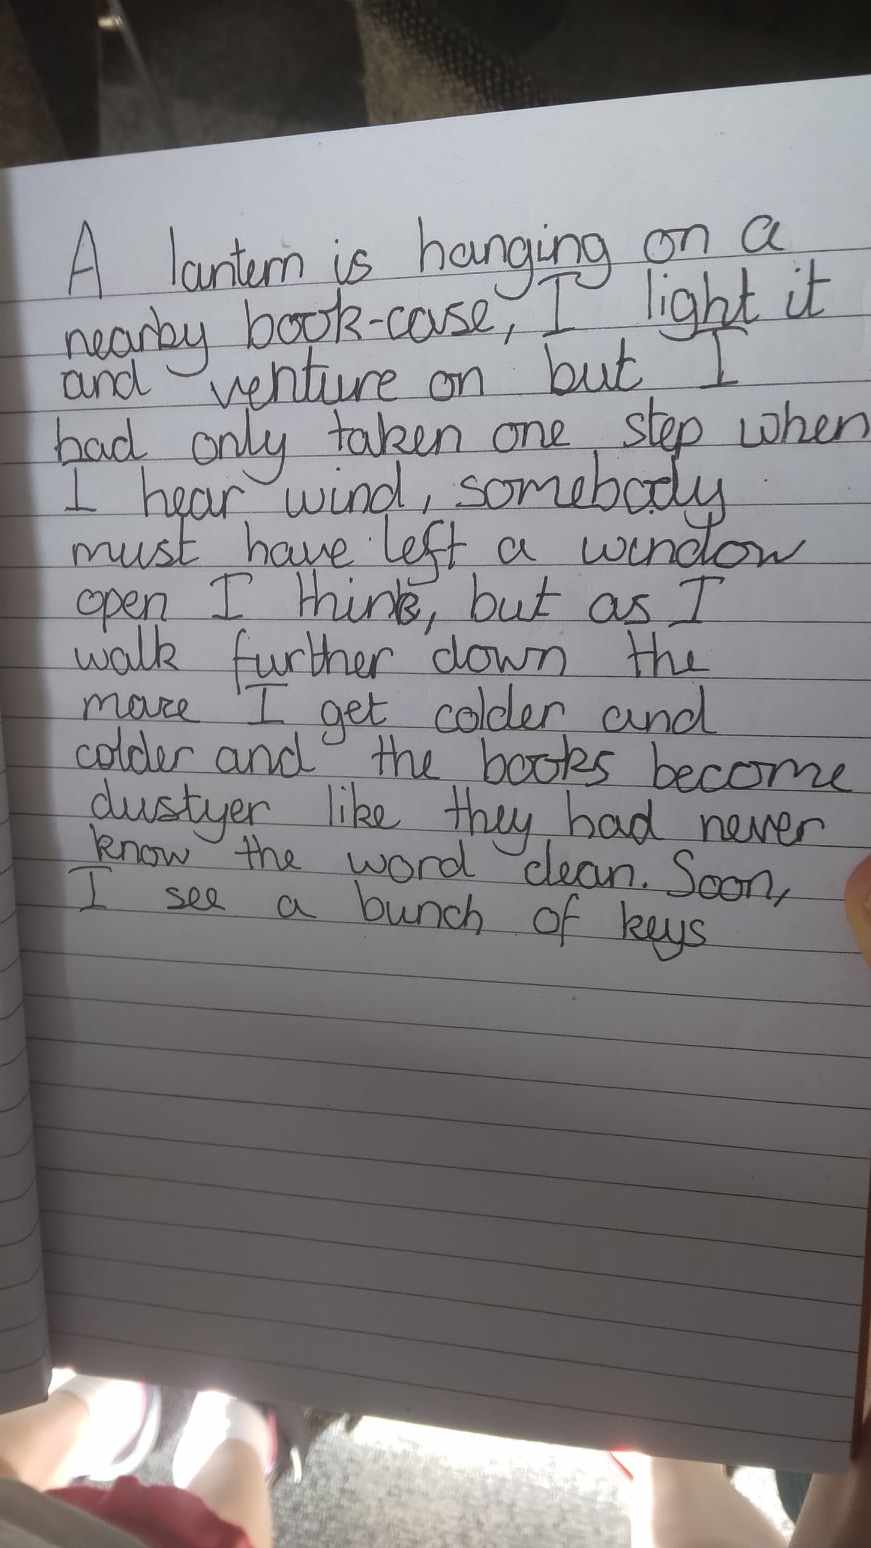 A lantern is hanging on a
nearby book-case, I light it
and venture on but I
had only taken one step when
I hear wind, somebody
must have left a window
open I think, but as I
walk further down the
maze I get colder and
colder and the books become
dustyer like they had never
know the word clean. Soon,
I see a bunch of keys